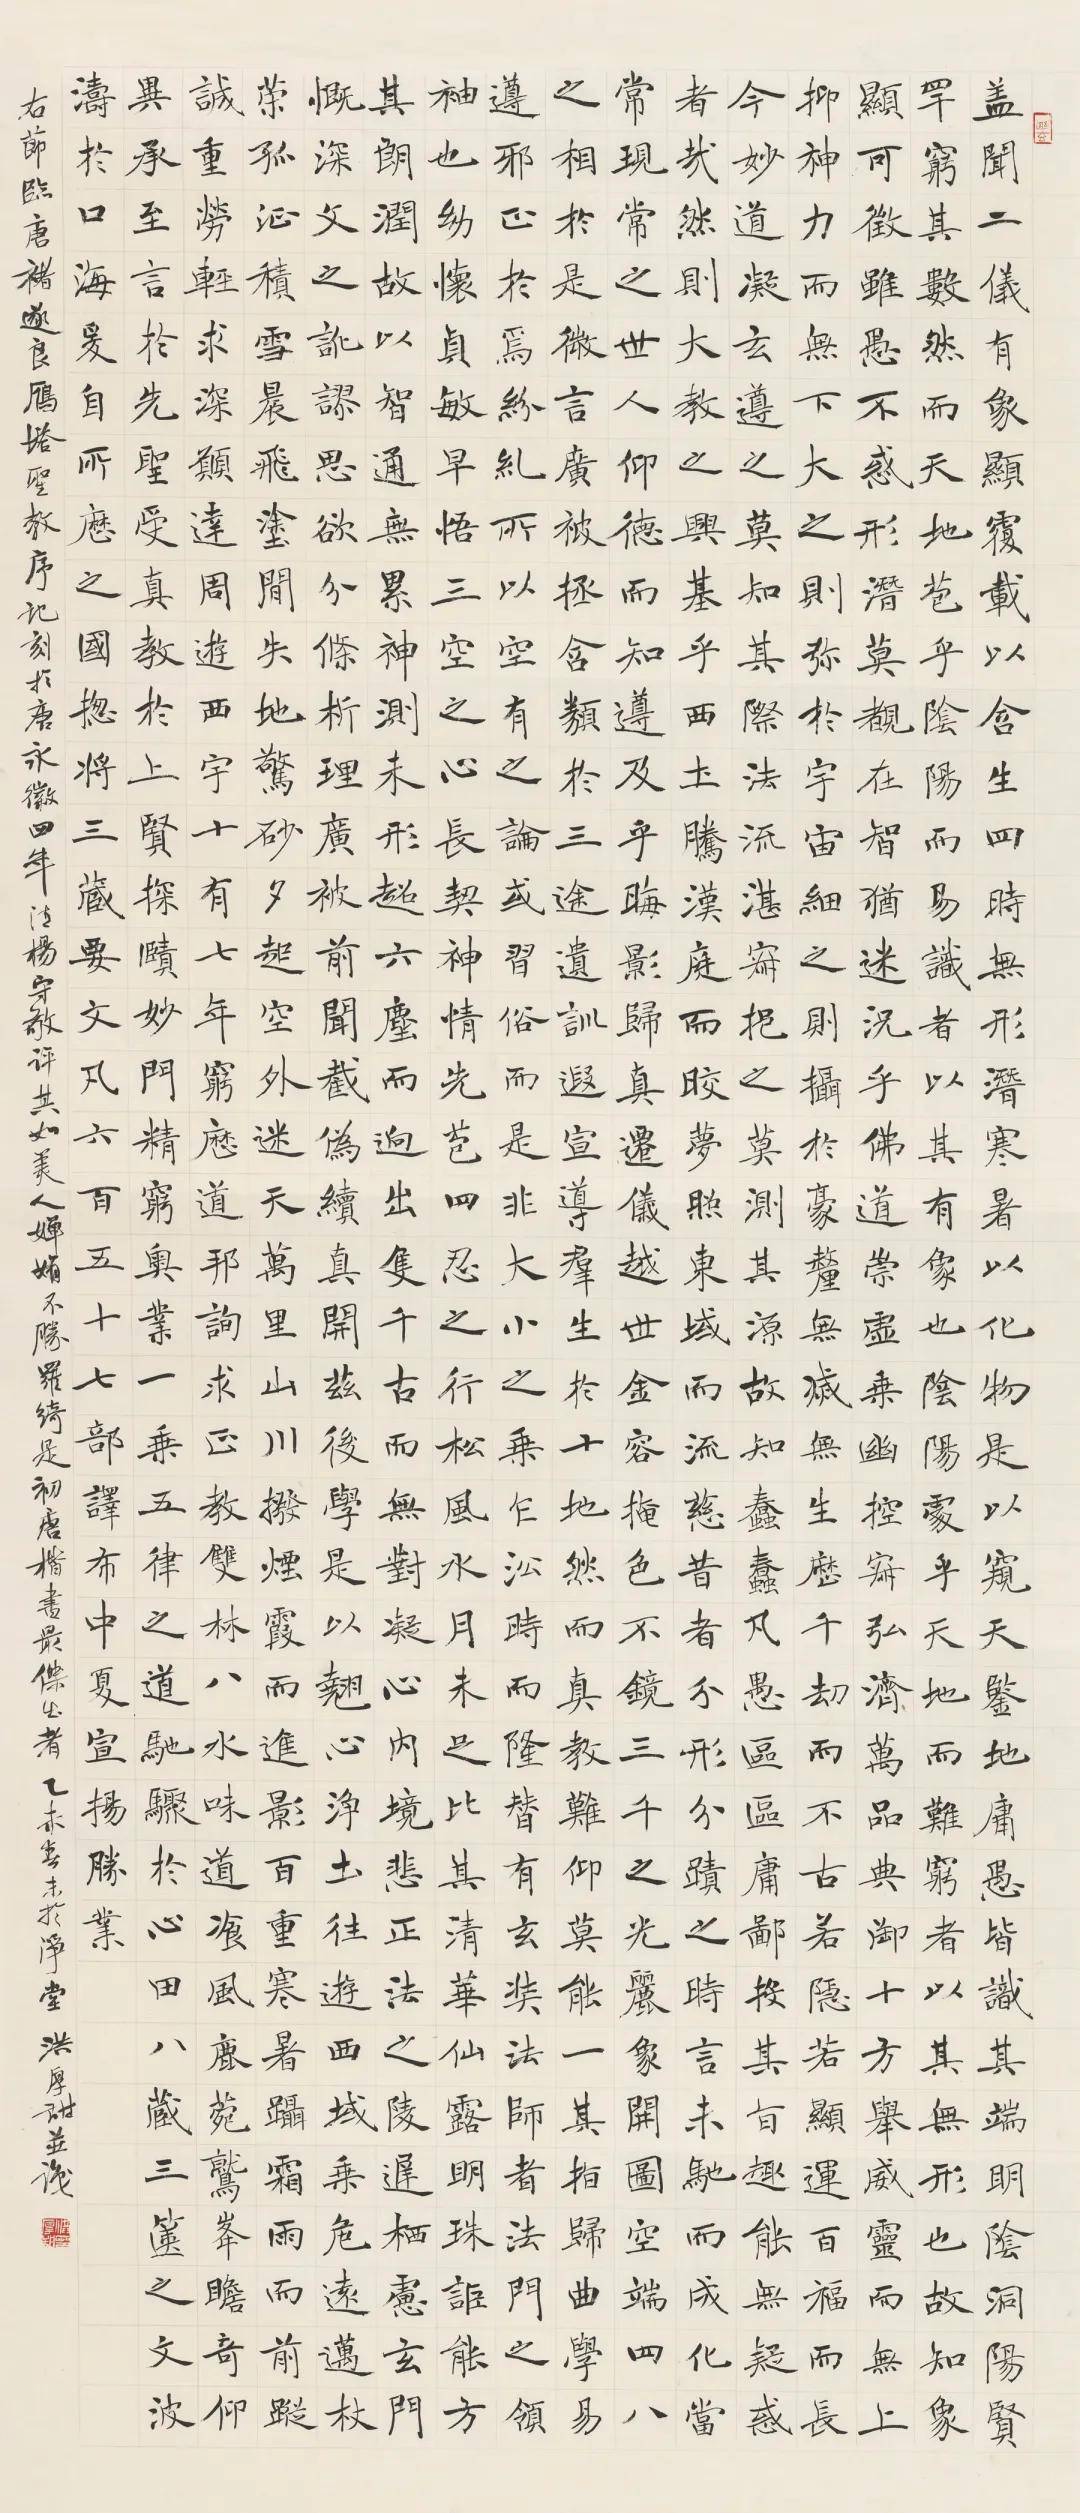 盖聞二儀有象顯覆載以含生四時無形潛寒暑以化物是以窺天鑒地庸愚皆識其端明陰洞陽賢
罕窮其數然而天地苞乎陰陽而易識者以其有象也陰陽處乎天地而難窮者以其無形也故知象
顯可徵雖愚不惑形潛莫覩在智猶迷況乎佛道崇虛乗幽控寂弘濟萬品典御十方舉威靈而無上
抑神力而無下大之則彌於宇宙細之則攝於豪釐無滅無生歷千劫而不古若隱若顯運百福而長
今妙道凝玄遵之莫知其際法流湛寂挹之莫測其源故知蠢蠢凡愚區區庸鄙投其旨趣能無疑惑
者㦲然則大教之興基乎西土騰漢庭而晈夢照東域而流慈昔者分形分蹟之時言未馳而成化當
常現常之世人仰德而知遵及乎晦影歸真遷儀越世金容掩色不鏡三千之光麗象開圖空端四八
之相於是微言廣被拯含類於三途遺訓遐宣導羣生於十地然而真教難仰莫能一其指歸曲學易
遵邪正於焉紛糺所以空有之論或習俗而是非大小之乗乍沿時而隆替有玄奘法師者法門之領
袖也幼懷貞敏早悟三空之心長契神情先苞四忍之行松風水月未足比其清華仙露明珠詎能方
其朗潤故以智通無累神測未形超六塵而迥出隻千古而無對凝心內境悲正法之陵遲栖慮玄門
慨深文之訛謬思欲分條析理廣被前聞截偽續真開茲後學是以翹心淨土往遊西域乗危遠邁杖
策孤征積雪晨飛塗間失地驚砂夕起空外迷天萬里山川撥煙霞而進影百重寒暑躡霜雨而前蹤
誠重勞輕求深願達周遊西宇十有七年窮歷道邦詢求正教雙林八水味道飡風鹿菀鷲峯瞻奇仰
異承至言於先聖受真教於上賢探賾妙門精窮奧業一乗五律之道馳驟於心田八藏三篋之文波
濤於口海爰自所歷之國揔將三藏要文凡六百五十七部譯布中夏宣揚勝業
右節臨唐褚遂良雁塔聖教序記刻於唐永徽四年 清楊守敬評其如美人嬋娟不勝羅綺是初唐楷書最傑出者 乙未春末於淨堂 洪厚甜並識